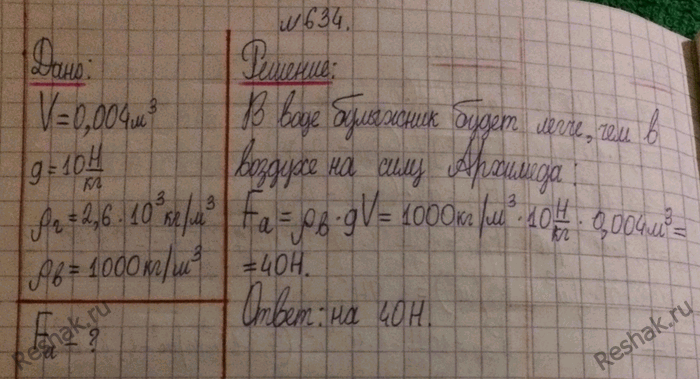 №634.
Дано:
V=0,004м³
g=10 Н/кг
ρг=2,6·10³кг/м³
ρв=1000кг/м³
Fа=?
Решение:
В воде булыжник будет легче, чем в
воздухе на силу Архимеда:
Fа=ρв·gV=1000кг/м³·10 Н/кг·0,004м³=
=40Н.
Ответ: на 40Н.
Reshak.ru
Reshak.ru